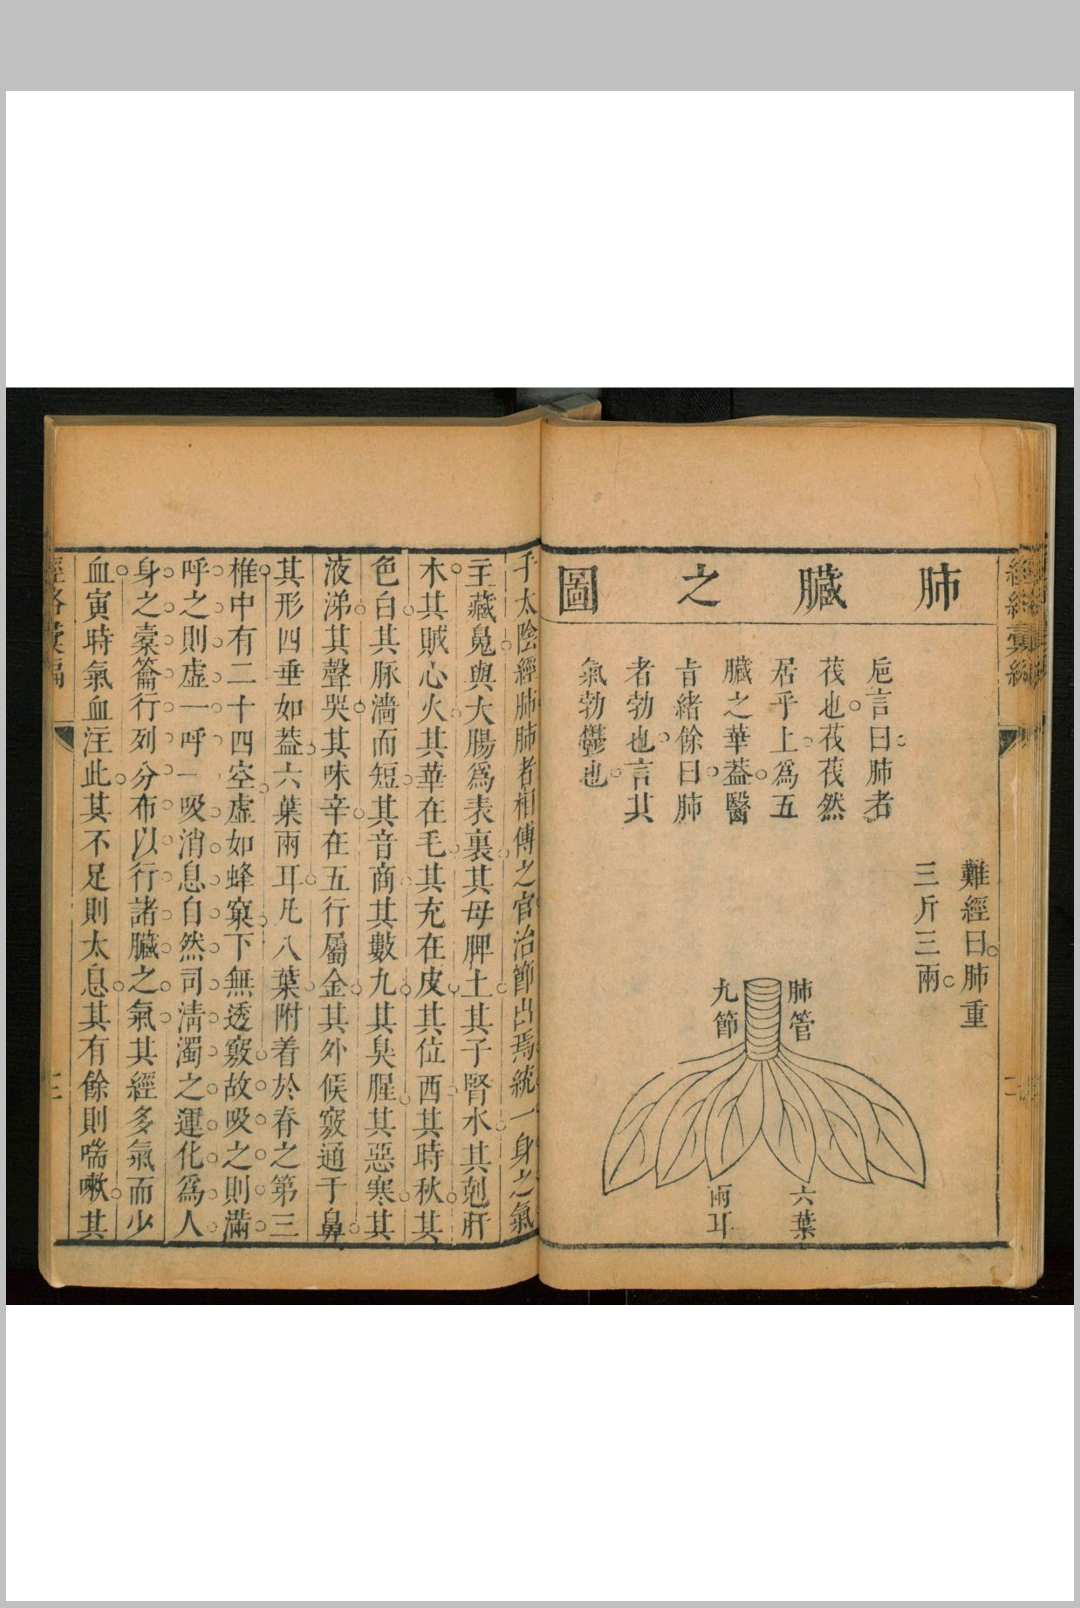 經絡彙編
肺臟之圖
難經曰肺重
三斤三兩
巵言曰肺者
茷也茷茷然
居乎上爲五
臟之華葢醫
旨緒餘曰肺
者勃也言其
氣勃鬱也
肺管
九節
六葉
兩耳
手太陰經肺肺者相傳之官治節出焉統一身之氣
主藏魄與大腸爲表裏其母脾土其子腎水其剋肝
木其賊心火其華在毛其充在皮其位西其時秋其
色白其脉濇而短其音商其數九其臭腥其惡寒其
液涕其聲哭其味辛在五行屬金其外候竅通于鼻
其形四垂如葢六葉兩耳凡八葉附着於脊之第三
椎中有二十四空虛如蜂窠下無透竅故吸之則滿
呼之則虛一呼一吸消息自然司淸濁之運化爲人
身之橐籥行列分布以行諸臟之氣其經多氣而少
血寅時氣血注此其不足則太息其有餘則喘嗽其
經絡彙編
三